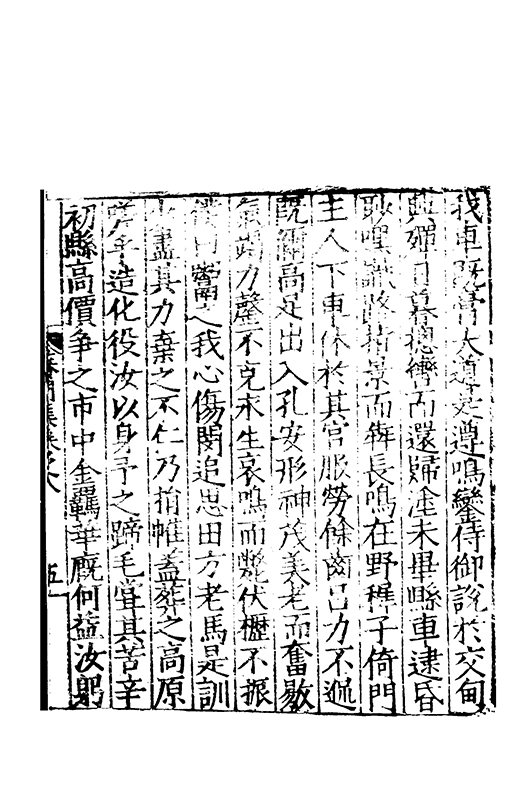 我車既膏大導是遵鳴鑾侍御說於交甸
典殫日暮總轡而還歸塗未畢縣車逮昏
聆嘿識路拊景而犇長鳴在野稚子倚門
主人下車休於其宮服勞餘齒呂力不逓
既病高足出入孔安形神茂美老而奮歇
氣竭力罄不克永生哀鳴而斃伏櫪不振
僕曰鬻之我心傷閔追思田方老馬是訓
少盡其力棄之不仁乃捐帷蓋葬之高原
嗟乎造化役汝以身予之蹄毛嘗其苦辛
初縣高價爭之市中金羈華廄何益汝躬
集卷之八
五